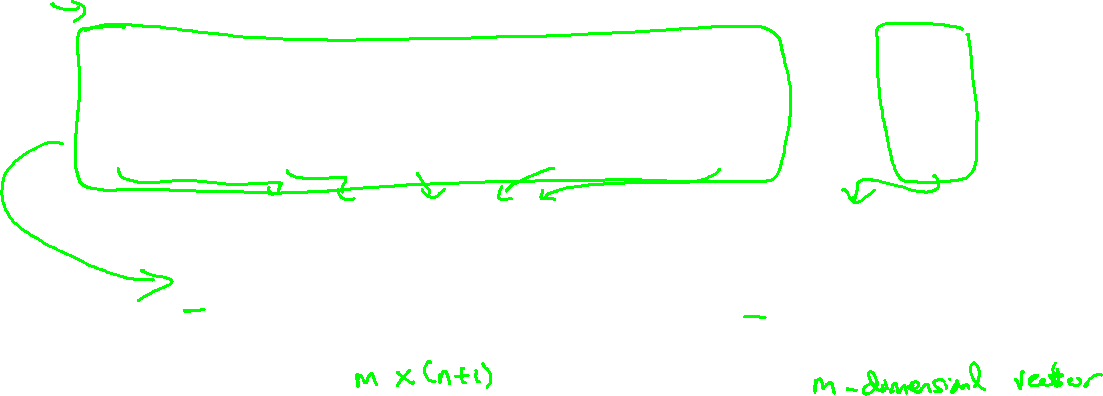 m × (n+1)
m-dimensional vector